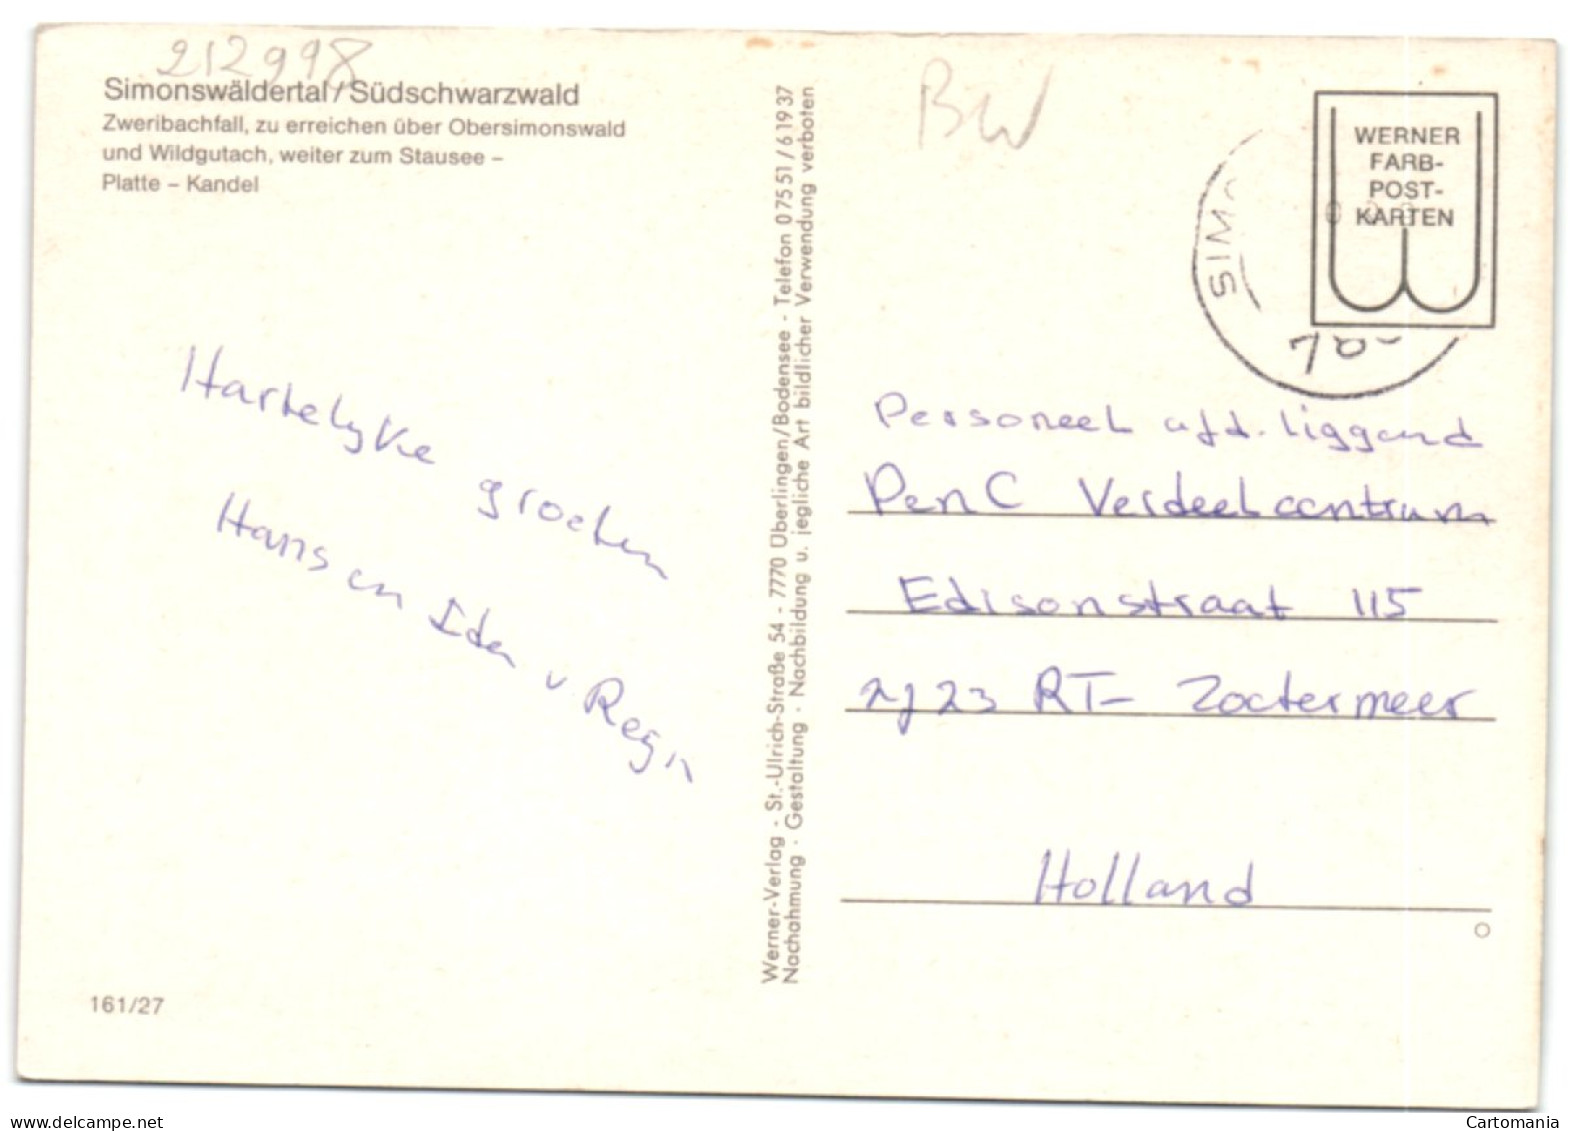 212998
Simonswäldertal/Südschwarzwald
Zweribachfall, zu erreichen über Obersimonswald
und Wildgutach, weiter zum Stausee –
Platte – Kandel
Hartelyke groeten
Hans en Ida v Regn
161/27
Werner-Verlag · St.-Ulrich-Straße 54 - 7770 Überlingen/Bodensee - Telefon 07551/61937
Nachahmung · Gestaltung · Nachbildung u. jegliche Art bildlicher Verwendung verboten
BW
WERNER
FARB-
POST-
KARTEN
SIMO
Personeel afd. liggend
PenC Verdeelcentrum
Edisonstraat 115
2723 RT- Zoetermeer
Holland
delcampe.net
Cartomania